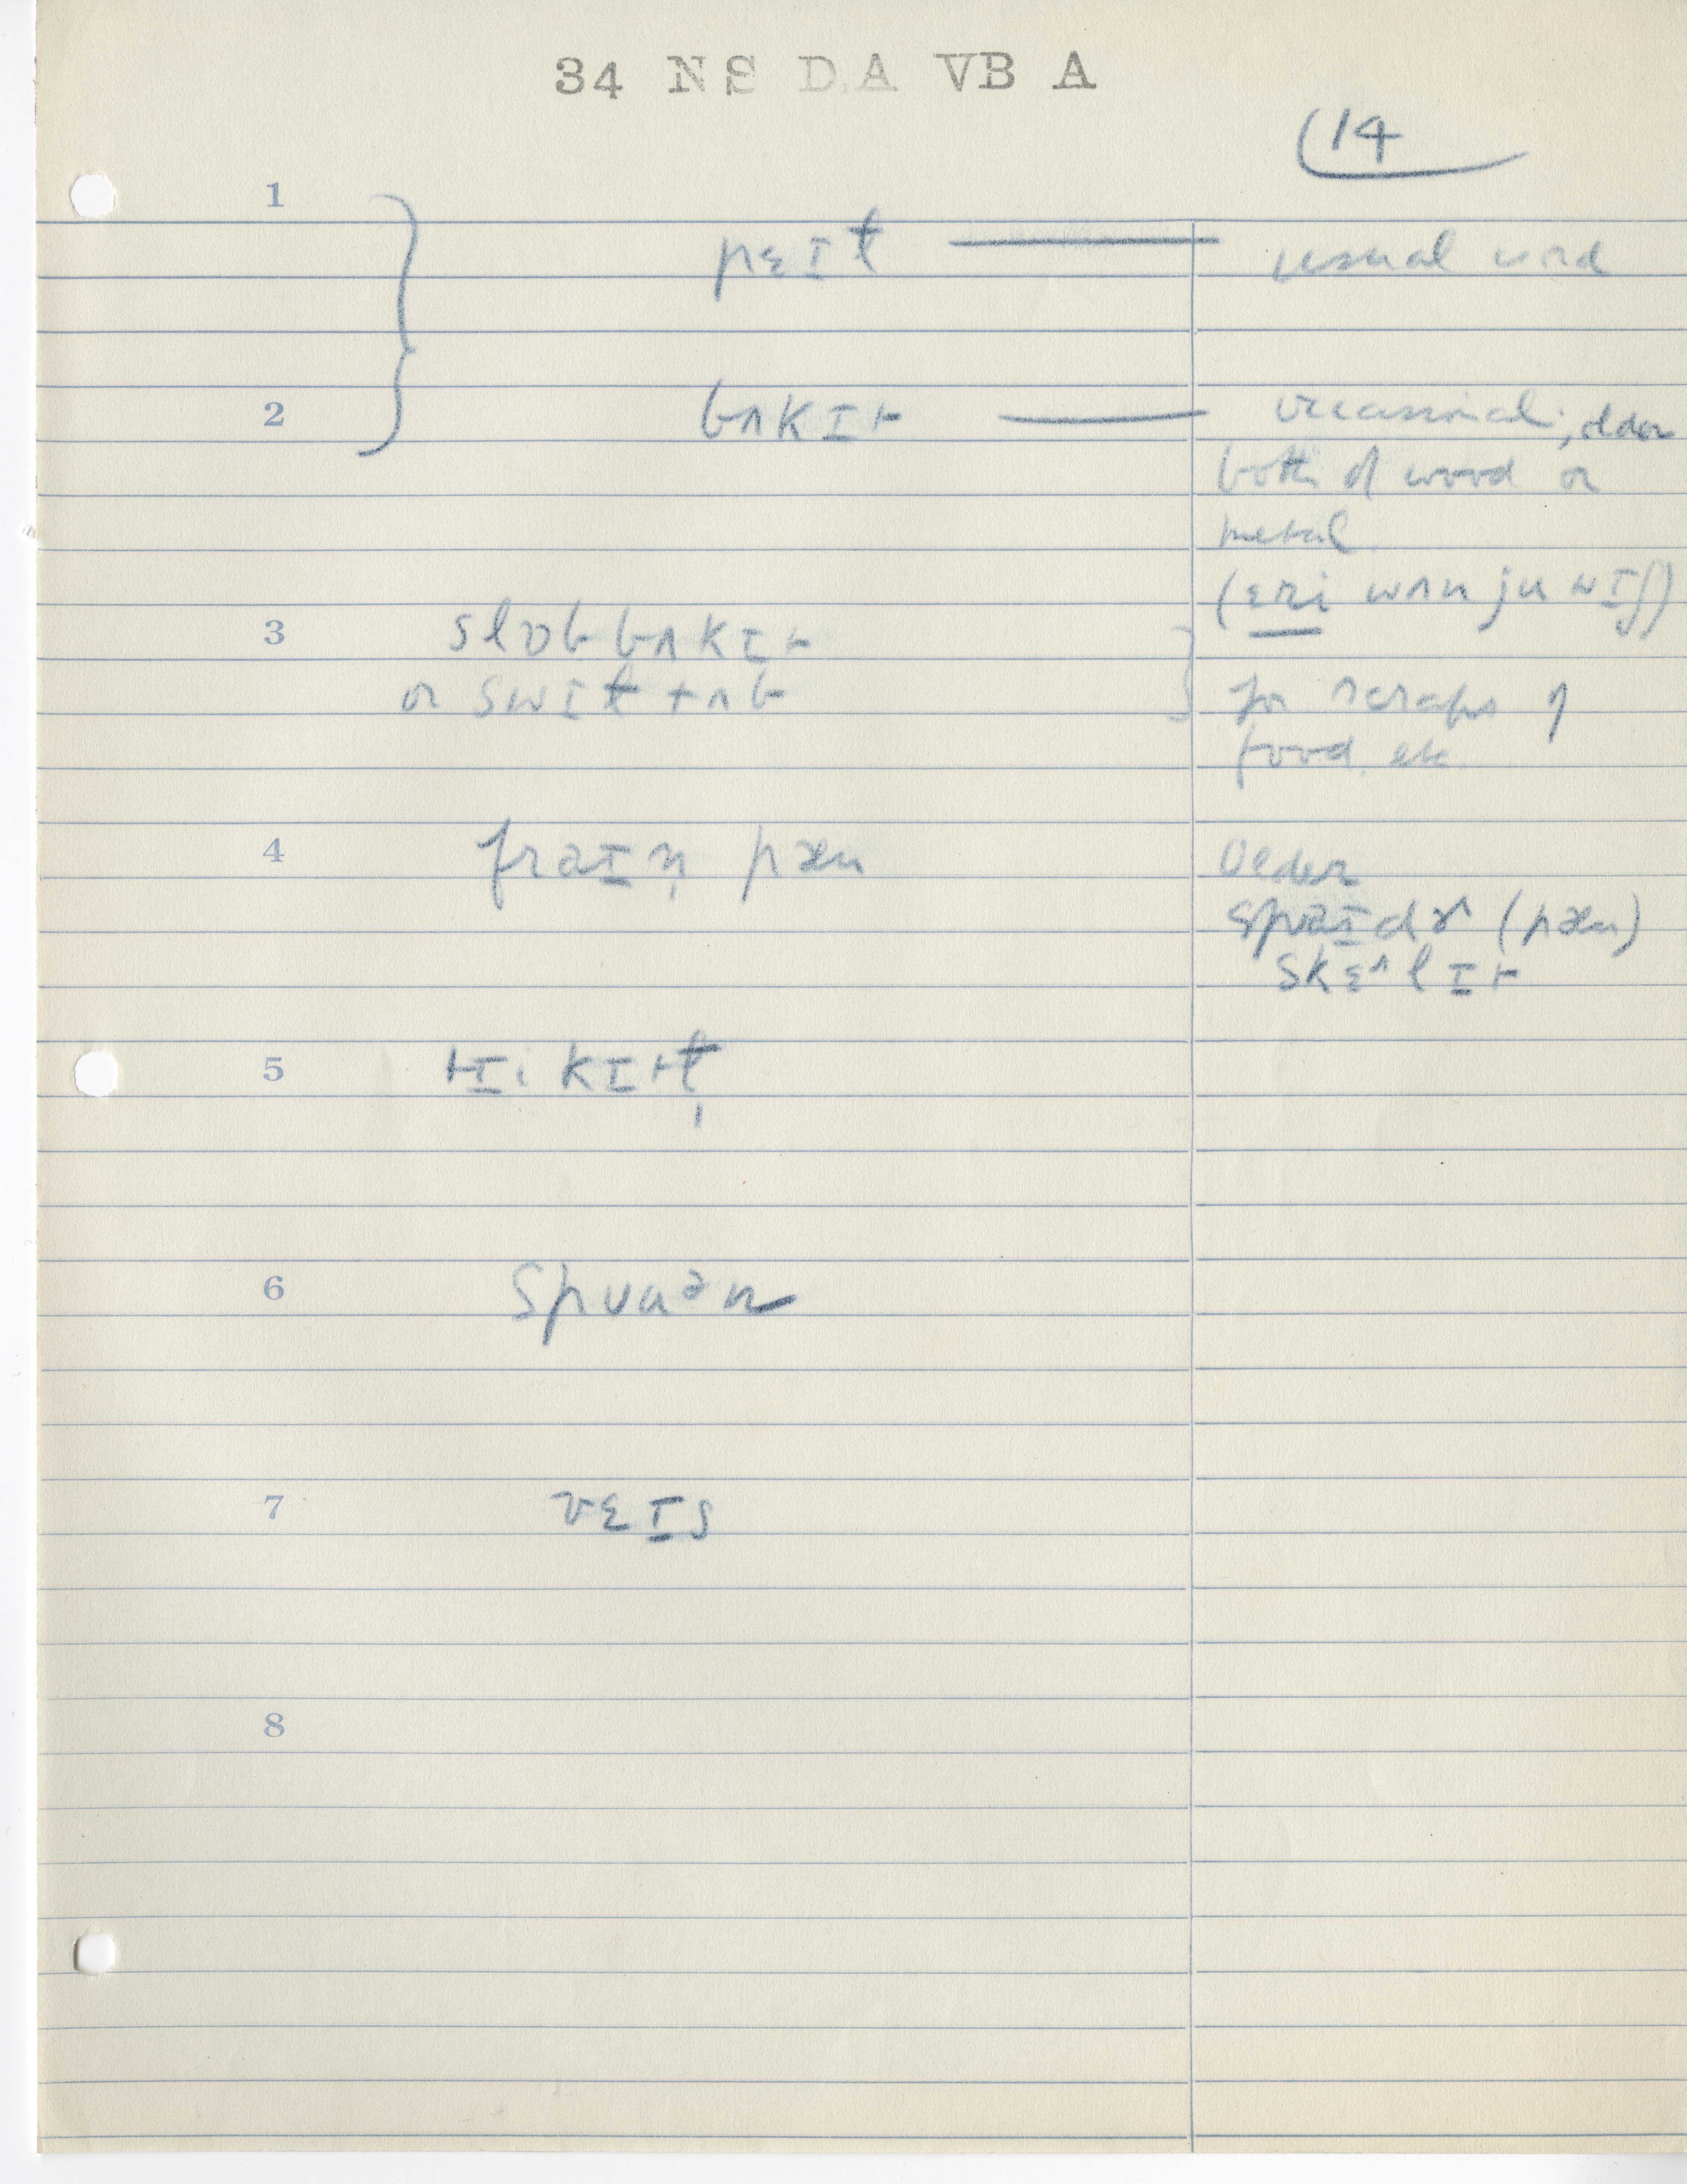 34 NS DA VB A
14
1 pɛɪɫ — usual word
2 bʌkɪt — occasional; older
both of wood or
metal
(ɛni wʌn ju wɪʃ)
3 slɒb bʌkɪt
or swɪɫ tʌb
for scraps of
food, etc.
4 fraɪn̩ pæn
Older
spaɪdɚ (pæn)
skɛʌlɪt
5 tɪi kɪtɫ̩
6
7 vɛɪs
8